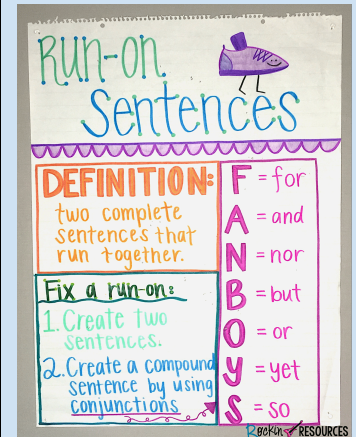 Run-on
Sentences
DEFINITION:
two complete
sentences that
run together.
Fix a run-on:
1. Create two
sentences.
2. Create a compound
sentence by using
conjunctions
F = for
A = and
N = nor
B = but
O = or
Y = yet
S = so
Rockin RESOURCES